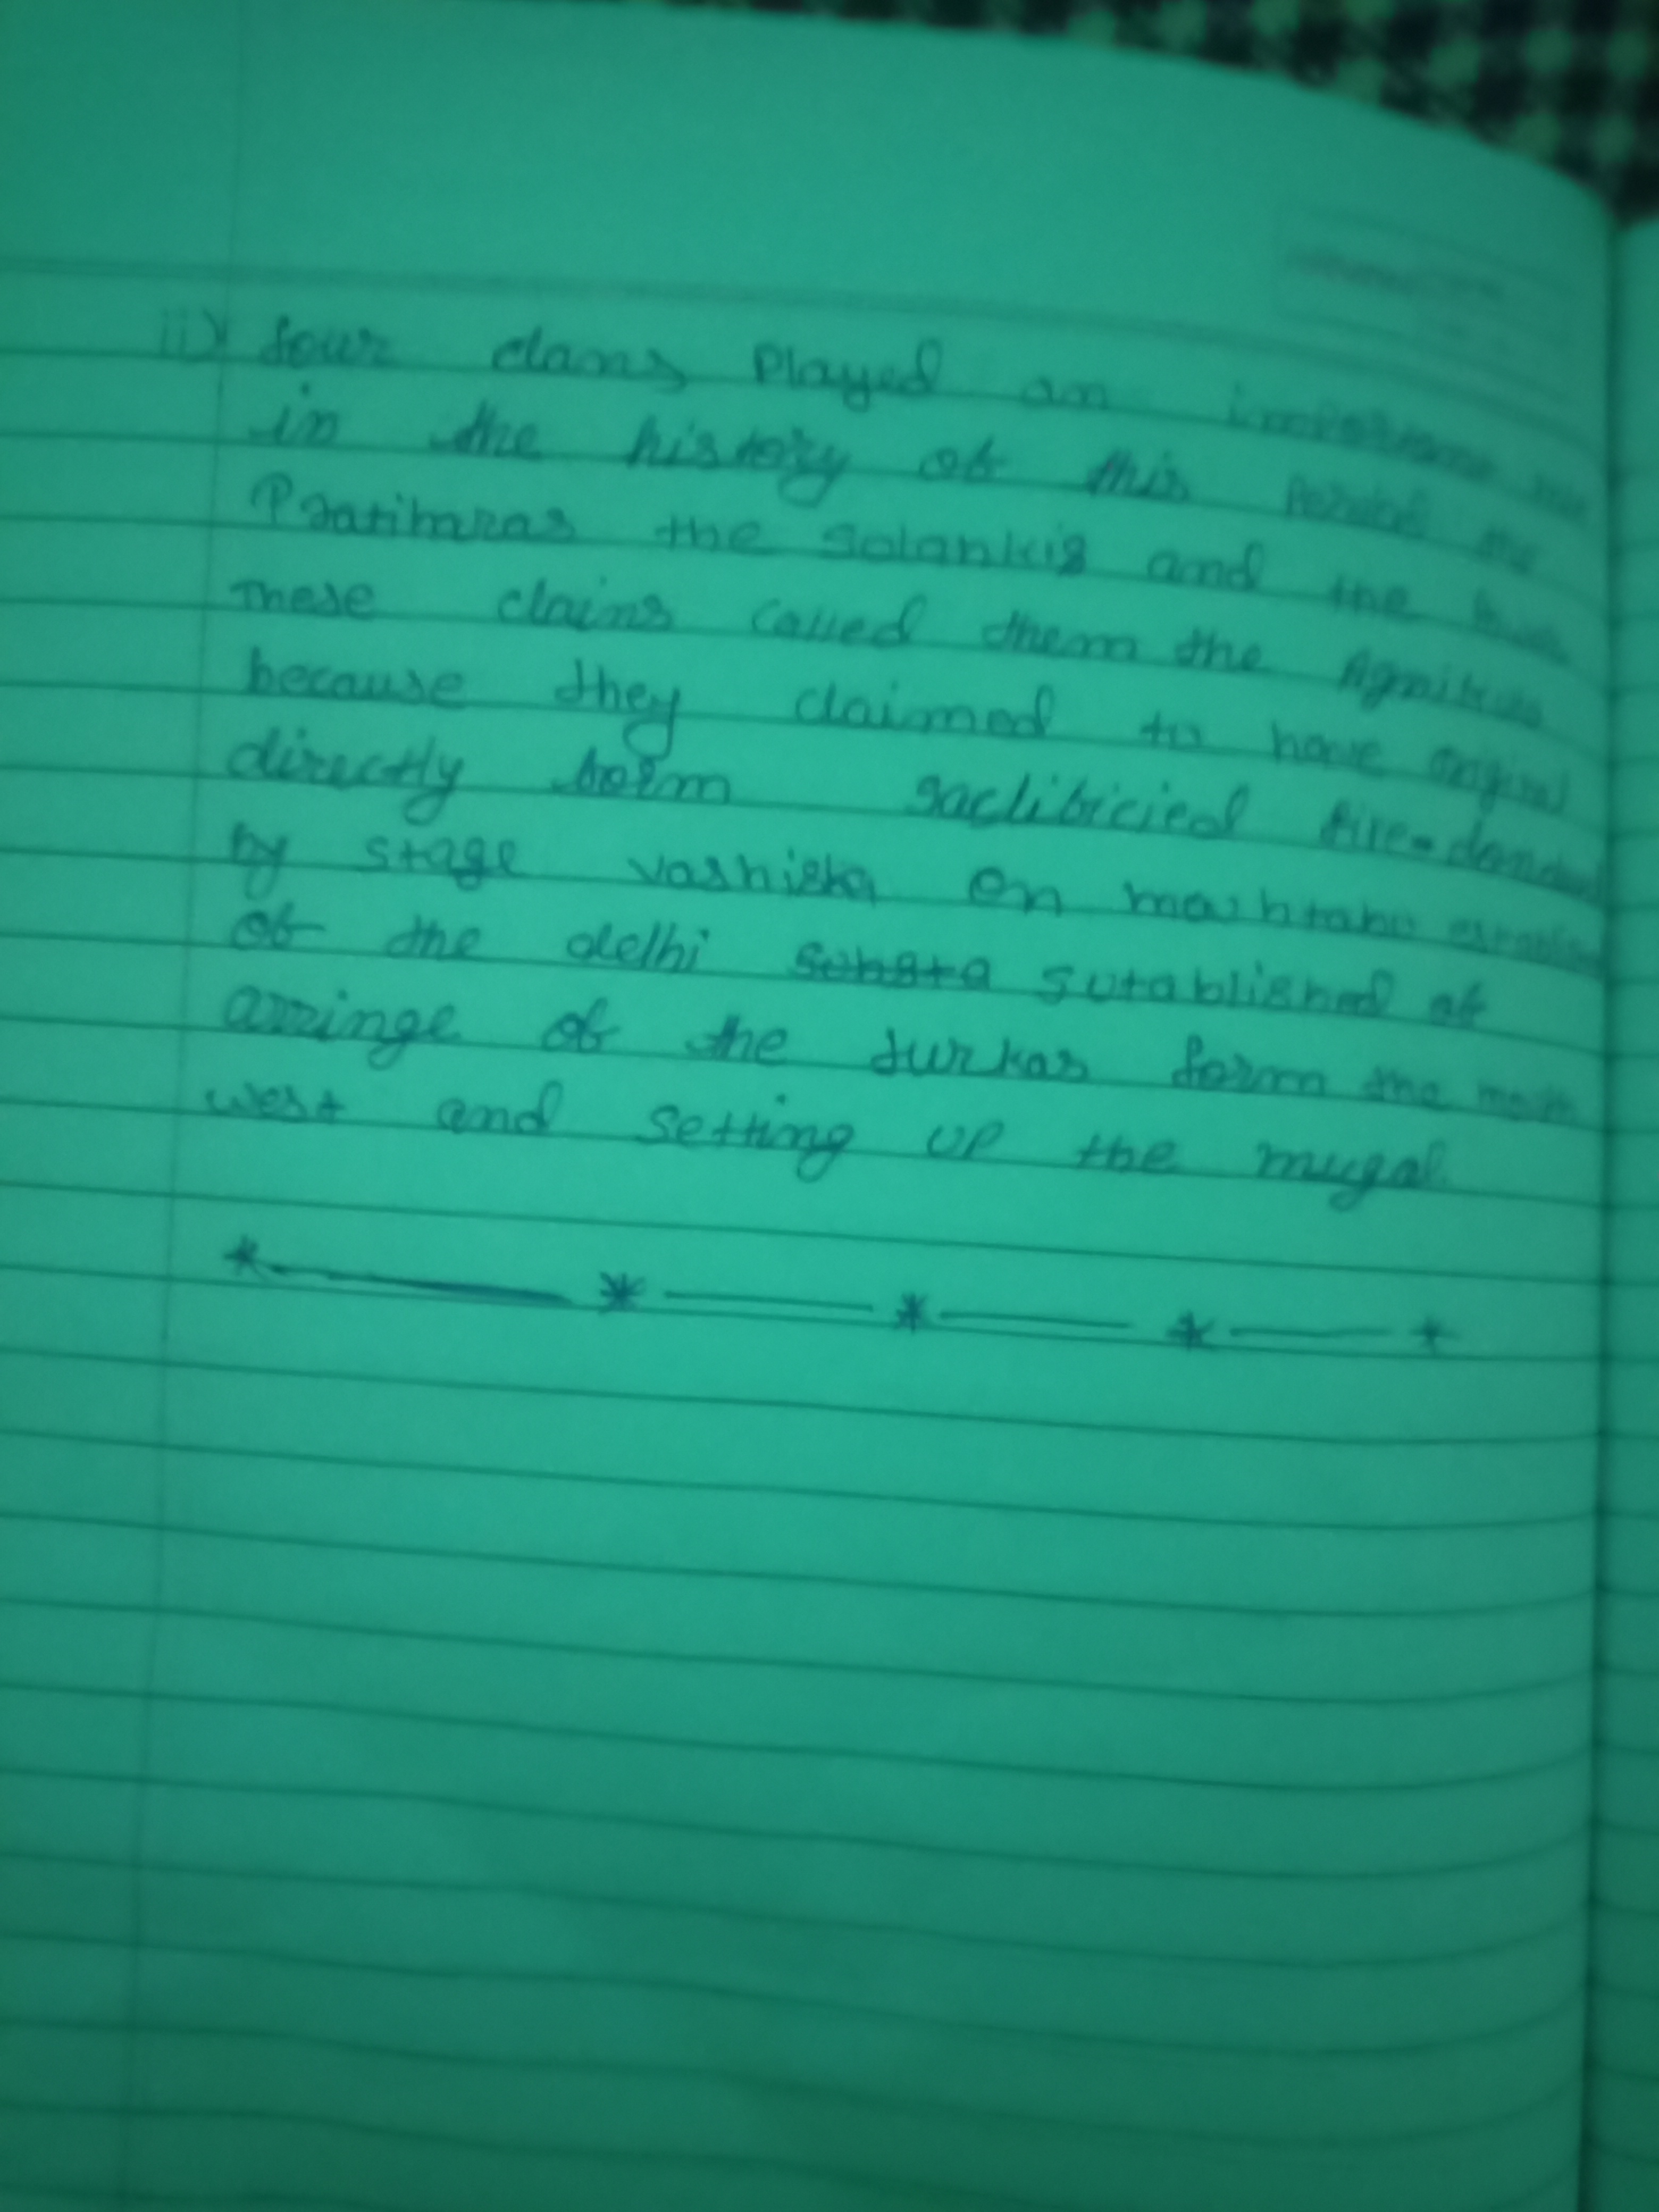 ii) four clans Played an
in the history of this
Pratiharas the solankis and the
These clains called them the Agnikulas
because they claimed to have
directly form saclibicied fire-
by stage vashista on
of the delhi sutablished of
arringe of the turkas form the
west and setting up the mugal